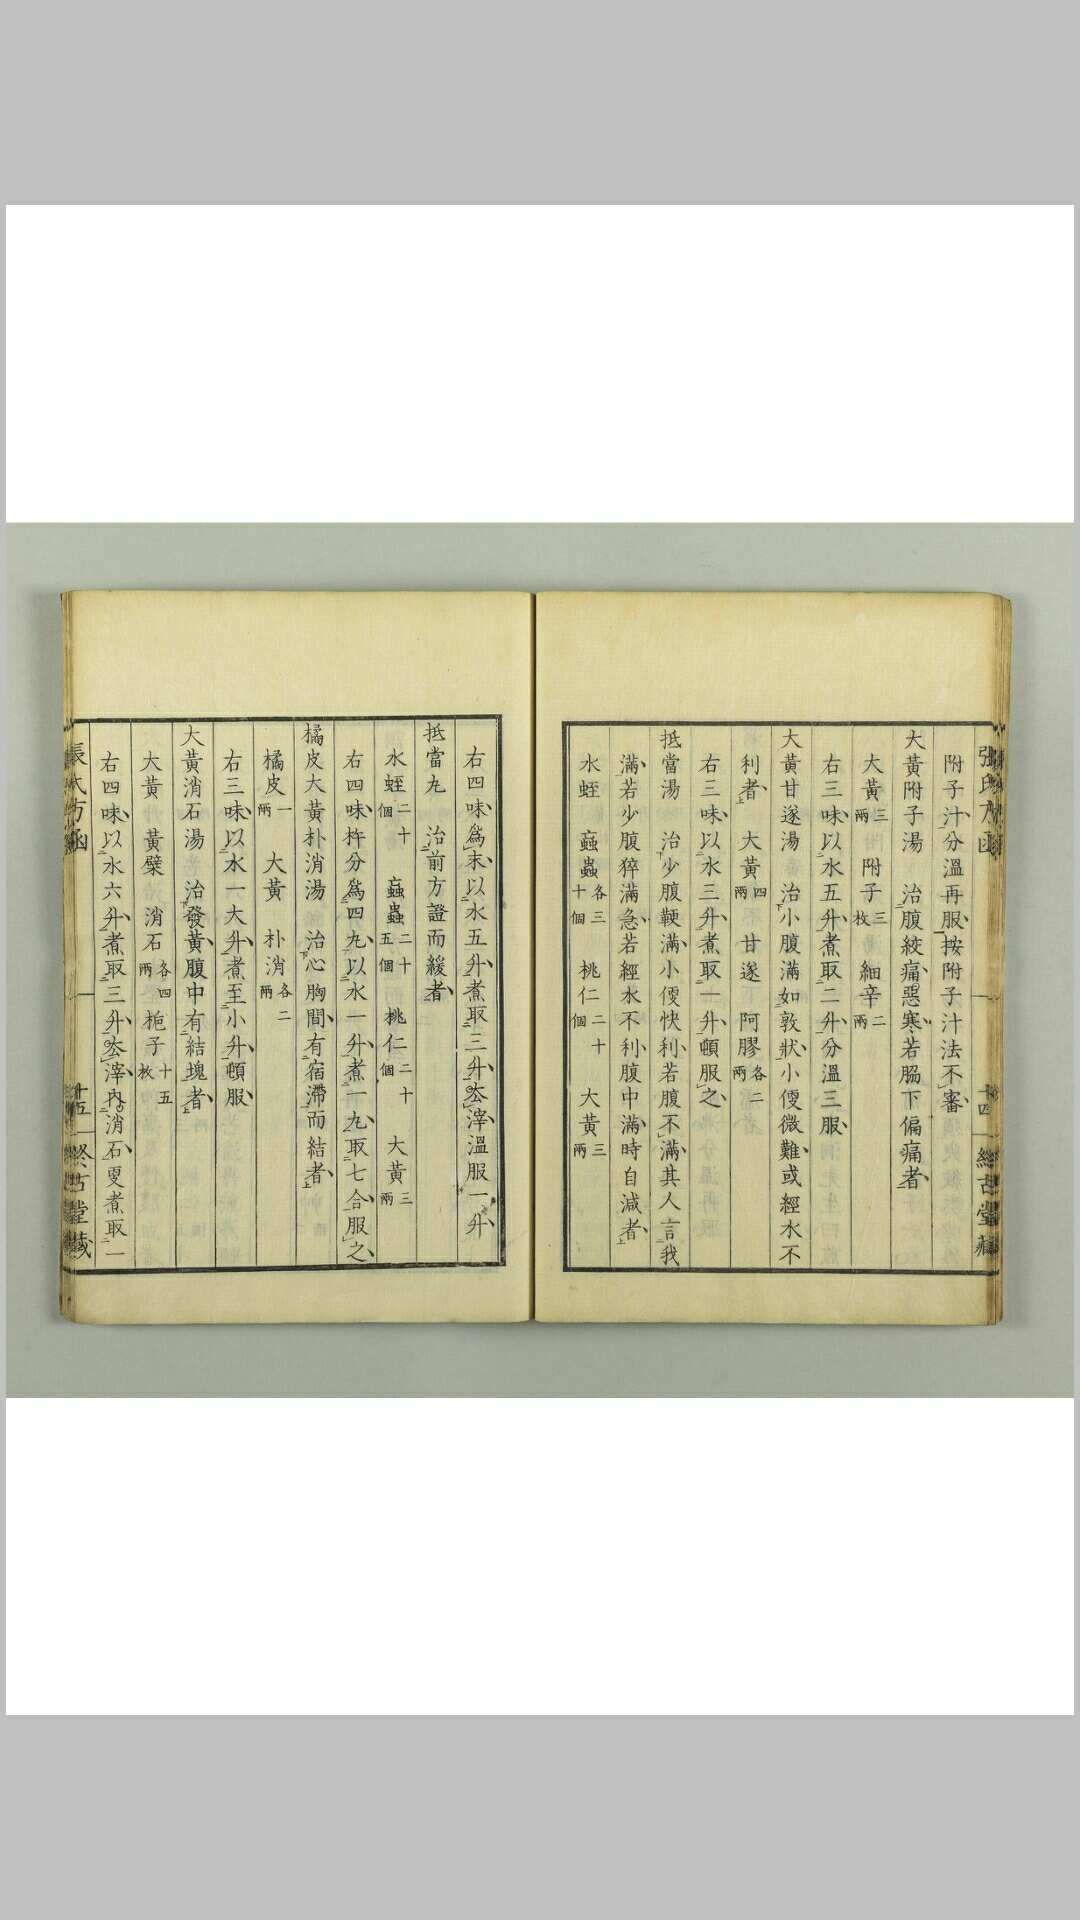 張氏方函
十四
終古堂藏
附子汁分溫再服按附子汁法不審
大黃附子湯 治腹絞痛惡寒若脇下偏痛者
大黃三兩 附子三枚 細辛二兩
右三味以水五升煮取二升分溫三服
大黃甘遂湯 治小腹滿如敦狀小便微難或經水不
利者 大黃四兩 甘遂 阿膠各二兩
右三味以水三升煮取一升頓服之
抵當湯 治少腹鞕滿小便快利若腹不滿其人言我
滿若少腹猝滿急若經水不利腹中滿時自減者
水蛭 蝱蟲各三十個 桃仁二十個 大黃三兩
右四味爲末以水五升煮取三升厺滓溫服一升
抵當丸 治前方證而緩者
水蛭二十個 蝱蟲二十五個 桃仁二十個 大黃三兩
右四味杵分爲四丸以水一升煮一丸取七合服之
橘皮大黃朴消湯 治心胸間有宿滯而結者
橘皮一兩 大黃 朴消各二兩
右三味以水一大升煮至小升頓服
大黃消石湯 治發黃腹中有結塊者
大黃 黃檗 消石各四兩 梔子十五枚
右四味以水六升煮取三升厺滓內消石更煮取一
張氏方函
十五
終古堂藏